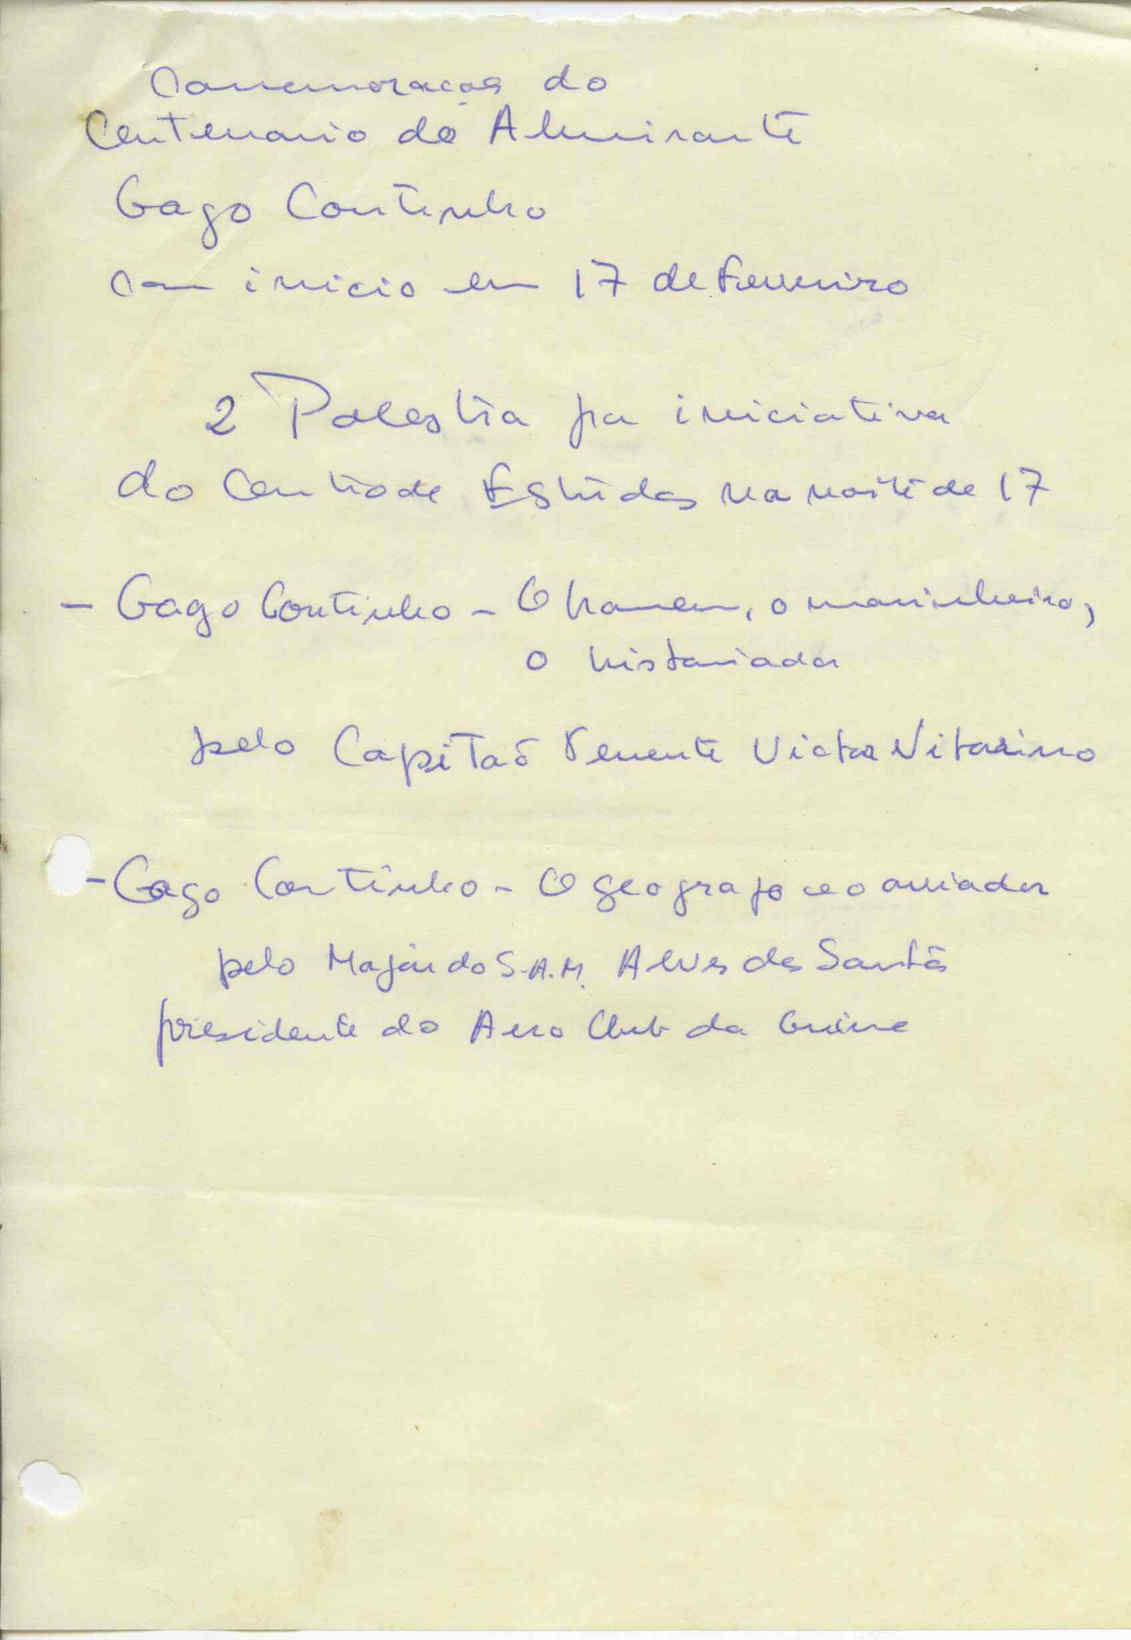 Comemoração do
Centenario do Almirante
Gago Coutinho
com inicio em 17 de Fevereiro
2 Palestra por iniciativa
do Centro de Estudos na noite de 17
- Gago Coutinho - O homem, o marinheiro,
o historiador
pelo Capitão Tenente Victor Vitorino
- Gago Coutinho - O geografo e o aviador
pelo Major do S.A.M. Alves dos Santos
presidente do Aero Club da Guine